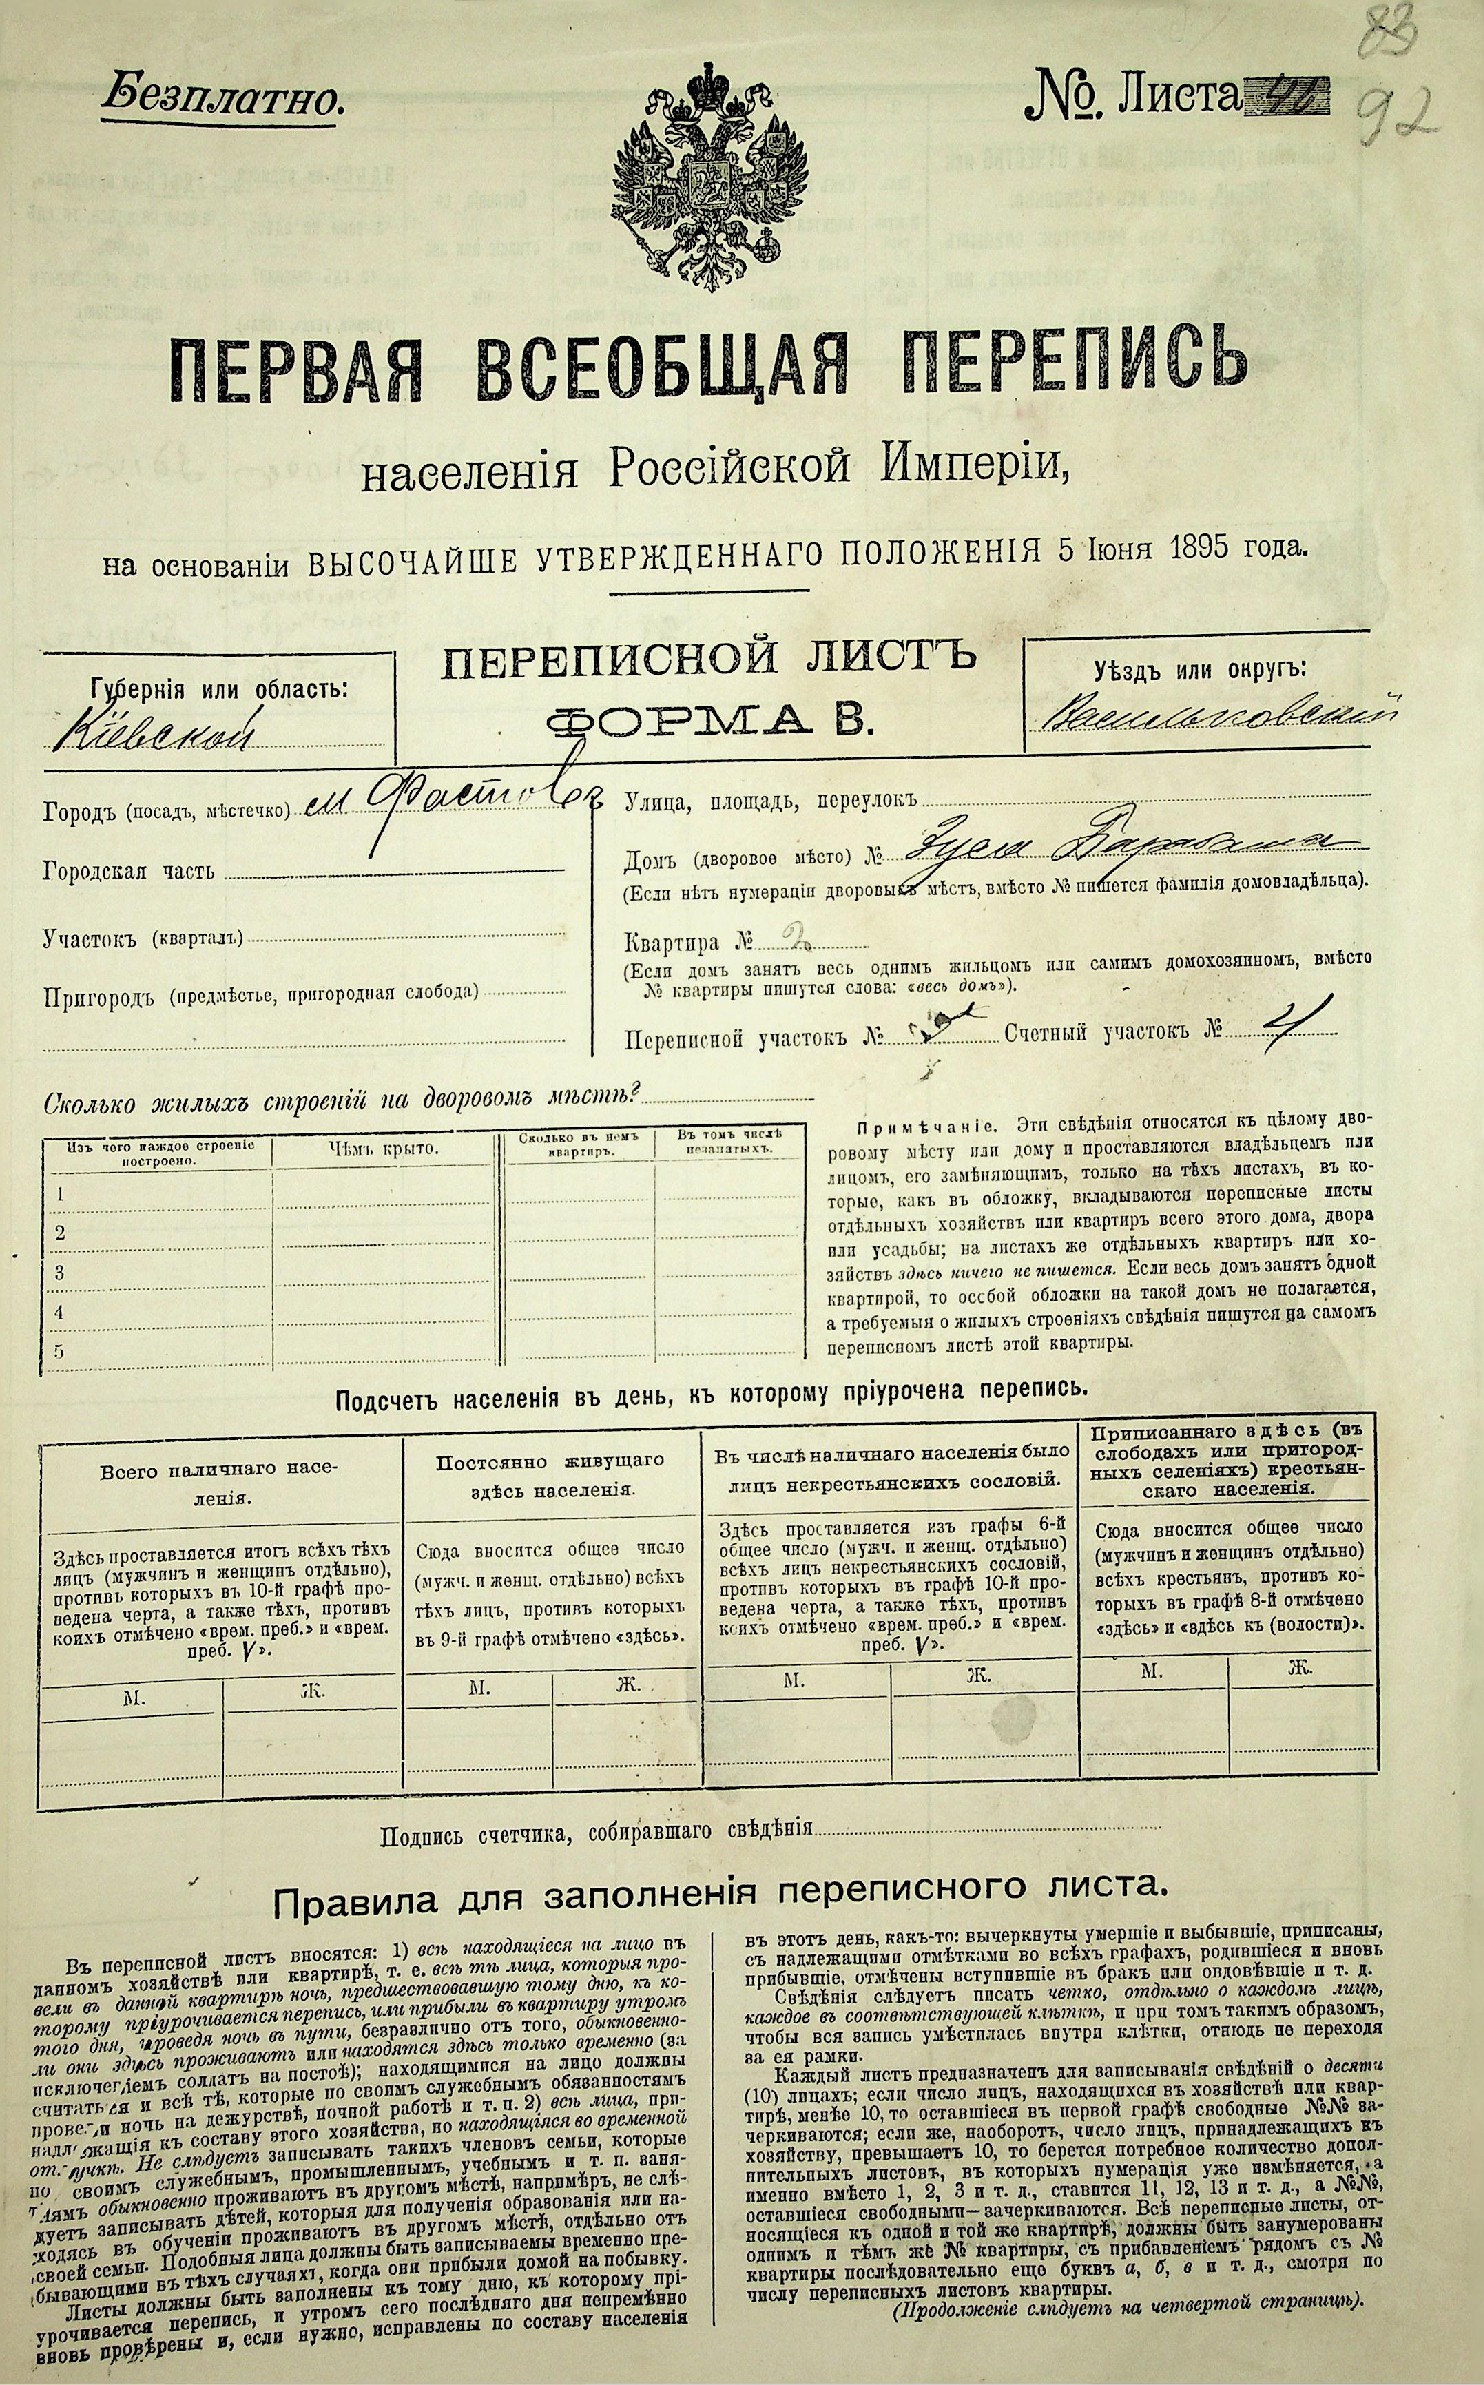 83
Безплатно.
№. Листа 46
92
ПЕРВАЯ ВСЕОБЩАЯ ПЕРЕПИСЬ
населенія Россійской Имперіи,
на основаніи ВЫСОЧАЙШЕ УТВЕРЖДЕННАГО ПОЛОЖЕНІЯ 5 Іюня 1895 года.
ПЕРЕПИСНОЙ ЛИСТЪ
ФОРМА В.
Губернія или область:
Кіевской
Уѣздъ или округъ:
Васильковскій
Городъ (посадъ, мѣстечко) м Фастовъ
Городская часть
Участокъ (кварталъ)
Пригородъ (предмѣстье, пригородная слобода)
Улица, площадь, переулокъ
Домъ (дворовое мѣсто) № Зуся Барабаша
(Если нѣтъ нумераціи дворовыхъ мѣстъ, вмѣсто № пишется фамилія домовладѣльца).
Квартира № 2
(Если домъ занятъ весь однимъ жильцомъ или самимъ домохозяиномъ, вмѣсто
№ квартиры пишутся слова: «весь домъ»).
Переписной участокъ № Счетный участокъ № 4
Сколько жилыхъ строеній на дворовомъ мѣстѣ?
Изъ чего каждое строеніе
построено.
Чѣмъ крыто.
Сколько въ немъ
квартиръ.
Въ томъ числѣ
незанятыхъ.
1
2
3
4
5
Примѣчаніе. Эти свѣдѣнія относятся къ цѣлому дво-
ровому мѣсту или дому и проставляются владѣльцемъ или
лицомъ, его замѣняющимъ, только на тѣхъ листахъ, въ ко-
торые, какъ въ обложку, вкладываются переписные листы
отдѣльныхъ хозяйствъ или квартиръ всего этого дома, двора
или усадьбы; на листахъ же отдѣльныхъ квартиръ или хо-
зяйствъ здѣсь ничего не пишется. Если весь домъ занятъ одной
квартирой, то особой обложки на такой домъ не полагается,
а требуемыя о жилыхъ строеніяхъ свѣдѣнія пишутся на самомъ
переписномъ листѣ этой квартиры.
Подсчетъ населенія въ день, къ которому пріурочена перепись.
Всего наличнаго насе-
ленія.
Здѣсь проставляется итогъ всѣхъ тѣхъ
лицъ (мужчинъ и женщинъ отдѣльно),
противъ которыхъ въ 10-й графѣ про-
ведена черта, а также тѣхъ, противъ
коихъ отмѣчено «врем. преб.» и «врем.
преб. V».
М. Ж.
Постоянно живущаго
здѣсь населенія.
Сюда вносится общее число
(мужч. и женщ. отдѣльно) всѣхъ
тѣхъ лицъ, противъ которыхъ
въ 9-й графѣ отмѣчено «здѣсь».
М. Ж.
Въ числѣ наличнаго населенія было
лицъ некрестьянскихъ сословій.
Здѣсь проставляется изъ графы 6-й
общее число (мужч. и женщ. отдѣльно)
всѣхъ лицъ некрестьянскихъ сословій,
противъ которыхъ въ графѣ 10-й про-
ведена черта, а также тѣхъ, противъ
коихъ отмѣчено «врем. преб.» и «врем.
преб. V».
М. Ж.
Приписаннаго здѣсь (въ
слободахъ или пригород-
ныхъ селеніяхъ) крестьян-
скаго населенія.
Сюда вносится общее число
(мужчинъ и женщинъ отдѣльно)
всѣхъ крестьянъ, противъ ко-
торыхъ въ графѣ 8-й отмѣчено
«здѣсь» и «здѣсь къ (волости)».
М. Ж.
Подпись счетчика, собиравшаго свѣдѣнія
Правила для заполненія переписного листа.
Въ переписной листъ вносятся: 1) всѣ находящіеся на лицо въ
данномъ хозяйствѣ или квартирѣ, т. е. всѣ тѣ лица, которыя про-
вели въ данной квартирѣ ночь, предшествовавшую тому дню, къ ко-
торому пріурочивается перепись, или прибыли въ квартиру утромъ
того дня, проведя ночь въ пути, безразлично отъ того, обыкновенно-
ли они здѣсь проживаютъ или находятся здѣсь только временно (за
исключеніемъ солдатъ на постоѣ); находящимися на лицо должны
считаться и всѣ тѣ, которые по своимъ служебнымъ обязанностямъ
провели ночь на дежурствѣ, ночной работѣ и т. п. 2) всѣ лица, при-
надлежащія къ составу этого хозяйства, но находящіяся во временной
отлучкѣ. Не слѣдуетъ записывать такихъ членовъ семьи, которые
по своимъ служебнымъ, промышленнымъ, учебнымъ и т. п. заня-
тіямъ обыкновенно проживаютъ въ другомъ мѣстѣ, напримѣръ, не слѣ-
дуетъ записывать дѣтей, которыя для полученія образованія или на-
ходясь въ обученіи проживаютъ въ другомъ мѣстѣ, отдѣльно отъ
своей семьи. Подобныя лица должны быть записываемы временно пре-
бывающими въ тѣхъ случаяхъ, когда они прибыли домой на побывку.
Листы должны быть заполнены къ тому дню, къ которому прі-
урочивается перепись, и утромъ сего послѣдняго дня непремѣнно
вновь провѣрены и, если нужно, исправлены по составу населенія
въ этотъ день, какъ-то: вычеркнуты умершіе и выбывшіе, приписаны,
съ надлежащими отмѣтками во всѣхъ графахъ, родившіеся и вновь
прибывшіе, отмѣчены вступившіе въ бракъ или овдовѣвшіе и т. д.
Свѣдѣнія слѣдуетъ писать четко, отдѣльно о каждомъ лицѣ,
каждое въ соотвѣтствующей клѣткѣ, и при томъ такимъ образомъ,
чтобы вся запись умѣстилась внутри клѣтки, отнюдь не переходя
за ея рамки.
Каждый листъ предназначенъ для записыванія свѣдѣній о десяти
(10) лицахъ; если число лицъ, находящихся въ хозяйствѣ или квар-
тирѣ, менѣе 10, то оставшіеся въ первой графѣ свободные №№ за-
черкиваются; если же, наоборотъ, число лицъ, принадлежащихъ къ
хозяйству, превышаетъ 10, то берется потребное количество допол-
нительныхъ листовъ, въ которыхъ нумерація уже измѣняется, а
именно вмѣсто 1, 2, 3 и т. д., ставится 11, 12, 13 и т. д., а №№,
оставшіеся свободными—зачеркиваются. Всѣ переписные листы, от-
носящіеся къ одной и той же квартирѣ, должны быть занумерованы
однимъ и тѣмъ же № квартиры, съ прибавленіемъ рядомъ съ №
квартиры послѣдовательно еще буквъ а, б, в и т. д., смотря по
числу переписныхъ листовъ квартиры.
(Продолженіе слѣдуетъ на четвертой страницѣ).